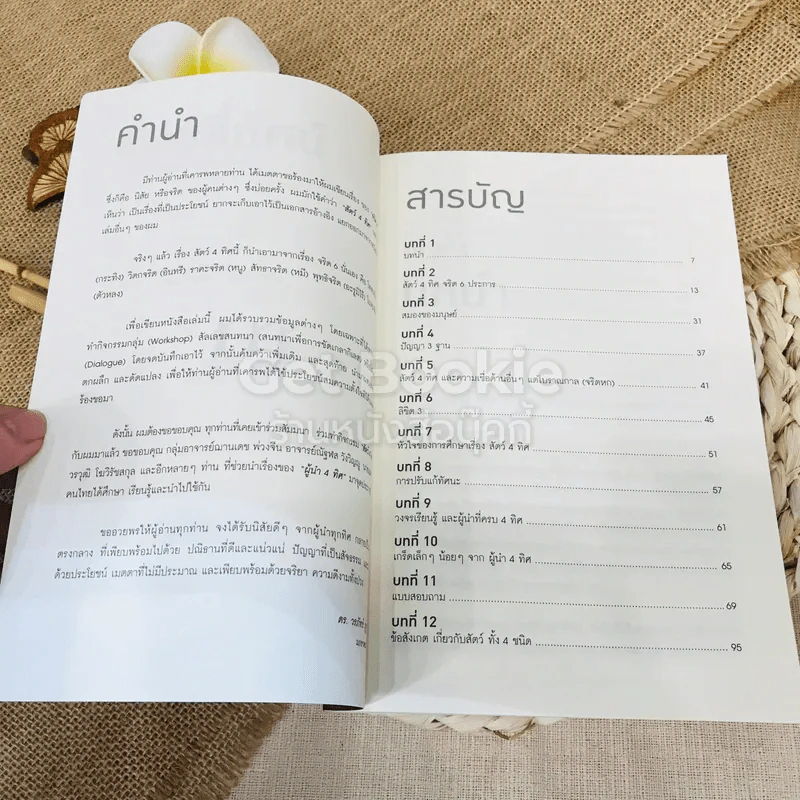 คำนำ
มีท่านผู้อ่านที่เคารพหลายท่าน ได้เมตตาขอร้องมาให้ผมเขียนเรื่อง
ซึ่งก็คือ นิสัย หรือจริต ของผู้คนต่างๆ ซึ่งบ่อยครั้ง ผมมักใช้คำว่า "สัตว์ 4 ทิศ"
เห็นว่า เป็นเรื่องที่เป็นประโยชน์ ยากจะเก็บเอาไว้เป็นเอกสารอ้างอิง
เล่มอื่นๆ ของผม
จริงๆ แล้ว เรื่อง สัตว์ 4 ทิศนี้ ก็นำเอามาจากเรื่อง จริต 6 นั่นเอง คือ
(กระทิง) วิตกจริต (อินทรี) ราคะจริต (หนู) สัทธาจริต (หมี) พุทธิจริต
(ตัวหลง)
เพื่อเขียนหนังสือเล่มนี้ ผมได้รวบรวมข้อมูลต่างๆ โดยเฉพาะที่ได้
ทำกิจกรรมกลุ่ม (Workshop) สัลเลขสนทนา (สนทนาเพื่อการขัดเกลากิเลส)
(Dialogue) โดยจดบันทึกเอาไว้ จากนั้นค้นคว้าเพิ่มเติม และสุดท้าย
ตกผลึก และดัดแปลง เพื่อให้ท่านผู้อ่านที่เคารพได้ใช้ประโยชน์สมความตั้งใจ
ร้องขอมา
ดังนั้น ผมต้องขอขอบคุณ ทุกท่านที่เคยเข้าร่วมสัมมนา ร่วมทำกิจกรรม
กับผมมาแล้ว ขอขอบคุณ กลุ่มอาจารย์ฌานเดช พ่วงจีน อาจารย์ณัฐฬส วังวิญญู
วรวุฒิ โฆวิรัชสกุล และอีกหลายๆ ท่าน ที่ช่วยนำเรื่องของ "ผู้นำ 4 ทิศ"
คนไทยได้ศึกษา เรียนรู้และนำไปใช้กัน
ขออวยพรให้ผู้อ่านทุกท่าน จงได้รับนิสัยดีๆ จากผู้นำทุกทิศ
ตรงกลาง ที่เพียบพร้อมไปด้วย ปณิธานที่ดีและแน่วแน่ ปัญญาที่เป็นสัจธรรม
ด้วยประโยชน์ เมตตาที่ไม่มีประมาณ และเพียบพร้อมด้วยจริยา ความดีงามทั้งปวง
ดร. วรภัทร์
สารบัญ
บทที่ 1
บทนำ 7
บทที่ 2
สัตว์ 4 ทิศ จริต 6 ประการ 13
บทที่ 3
สมองของมนุษย์ 31
บทที่ 4
ปัญญา 3 ฐาน 37
บทที่ 5
สัตว์ 4 ทิศ และความเชื่อด้านอื่นๆ แต่โบราณกาล (จริตหก) 41
บทที่ 6
ลิขิต 3 45
บทที่ 7
หัวใจของการศึกษาเรื่อง สัตว์ 4 ทิศ 51
บทที่ 8
การปรับแก้ทัศนะ 57
บทที่ 9
วงจรเรียนรู้ และผู้นำที่ครบ 4 ทิศ 61
บทที่ 10
เกร็ดเล็กๆ น้อยๆ จาก ผู้นำ 4 ทิศ 65
บทที่ 11
แบบสอบถาม 69
บทที่ 12
ข้อสังเกต เกี่ยวกับสัตว์ ทั้ง 4 ชนิด 95
Get Bookie
ร้านหนังสือบุ๊คกี้